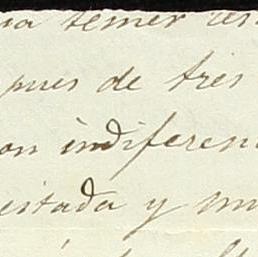 temer
pues de tres
on indiferen
estada y mu